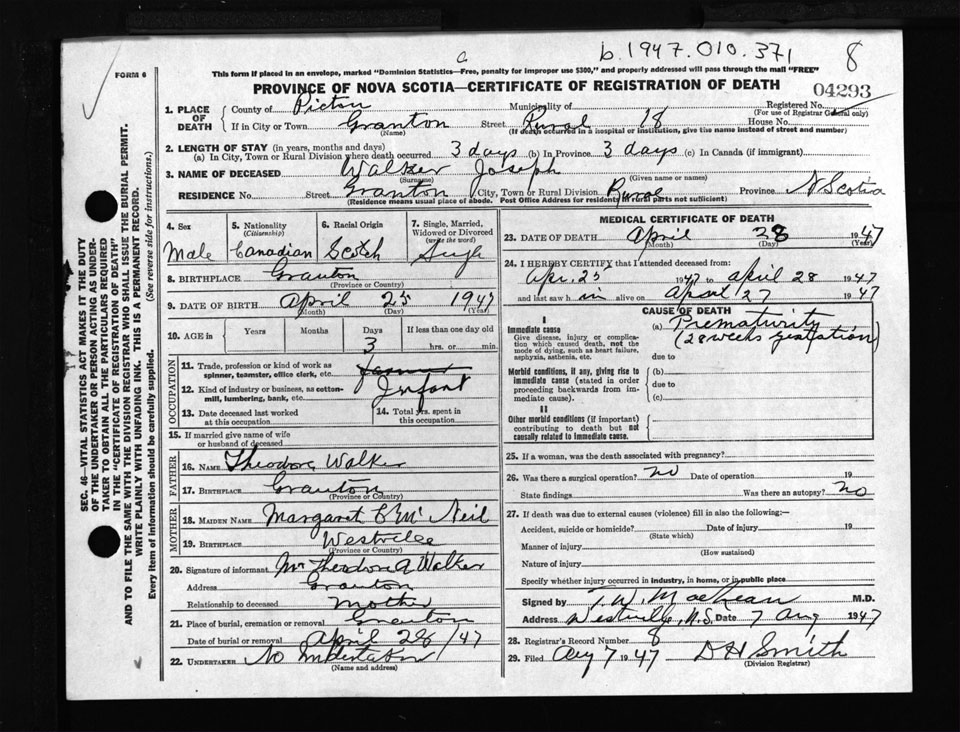 b.1947.010.371
8
a
FORM 6
This form if placed in an envelope, marked "Dominion Statistics—Free, penalty for improper use $300," and properly addressed will pass through the mail "FREE"
PROVINCE OF NOVA SCOTIA—CERTIFICATE OF REGISTRATION OF DEATH
04293
1. PLACE OF DEATH
County of Pictou Municipality of Registered No.
(For use of Registrar General only)
If in City or Town Granton Street Rural 18 House No.
(Name) (If death occurred in a hospital or institution, give the name instead of street and number)
2. LENGTH OF STAY (in years, months and days)
(a) In City, Town or Rural Division where death occurred 3 days (b) In Province 3 days (c) In Canada (if immigrant)
3. NAME OF DECEASED Walker Joseph
(Surname) (Given name or names)
RESIDENCE No. Street Granton City, Town or Rural Division Rural Province N Scotia
(Residence means usual place of abode. Post Office Address for residents in rural parts not sufficient)
4. Sex
Male
5. Nationality
(Citizenship)
Canadian
6. Racial Origin
Scotch
7. Single, Married, Widowed or Divorced
(write the word)
Single
8. BIRTHPLACE Granton
(Province or Country)
9. DATE OF BIRTH April 25 1947
(Month) (Day) (Year)
10. AGE in
Years Months Days If less than one day old
3 hrs. or min.
OCCUPATION
11. Trade, profession or kind of work as spinner, teamster, office clerk, etc.
12. Kind of industry or business, as cotton-mill, lumbering, bank, etc. Infant
13. Date deceased last worked at this occupation
14. Total yrs. spent in this occupation
15. If married give name of wife or husband of deceased
FATHER
16. NAME Theodore Walker
17. BIRTHPLACE Granton
(Province or Country)
MOTHER
18. MAIDEN NAME Margaret B McNeil
19. BIRTHPLACE Westville
(Province or Country)
20. Signature of informant Mrs Theodore A Walker
Address Granton
Relationship to deceased Mother
21. Place of burial, cremation or removal Granton
Date of burial or removal April 28/47
22. UNDERTAKER No Undertaker
(Name and address)
MEDICAL CERTIFICATE OF DEATH
23. DATE OF DEATH April 28 1947
(Month) (Day) (Year)
24. I HEREBY CERTIFY that I attended deceased from:
Apr. 25 1947 to April 28 1947
and last saw h im alive on April 27 1947
CAUSE OF DEATH
I
Immediate cause
Give disease, injury or complication which caused death, not the mode of dying, such as heart failure, asphyxia, asthenia, etc.
(a) Prematurity
(28 weeks gestation)
due to
Morbid conditions, if any, giving rise to immediate cause (stated in order proceeding backwards from immediate cause).
(b)
due to
(c)
II
Other morbid conditions (if important) contributing to death but not causally related to immediate cause.
25. If a woman, was the death associated with pregnancy?
26. Was there a surgical operation? no Date of operation 19
State findings Was there an autopsy? no
27. If death was due to external causes (violence) fill in also the following:—
Accident, suicide or homicide? Date of injury 19
(State which)
Manner of injury
(How sustained)
Nature of injury
Specify whether injury occurred in industry, in home, or in public place
Signed by T. W. MacLean M.D.
Address Westville, N.S. Date 7 Aug 1947
28. Registrar's Record Number 8
29. Filed Aug 7 1947 D H Smith
(Division Registrar)
SEC. 46—VITAL STATISTICS ACT MAKES IT THE DUTY
OF THE UNDERTAKER OR PERSON ACTING AS UNDER-
TAKER TO OBTAIN ALL THE PARTICULARS REQUIRED
IN THE "CERTIFICATE OF REGISTRATION OF DEATH"
AND TO FILE THE SAME WITH THE DIVISION REGISTRAR WHO SHALL ISSUE THE BURIAL PERMIT.
WRITE PLAINLY WITH UNFADING INK. THIS IS A PERMANENT RECORD.
Every item of information should be carefully supplied. (See reverse side for instructions.)